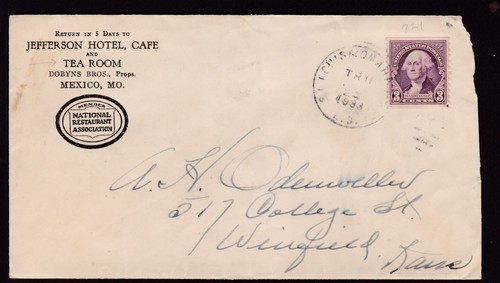 RETURN IN 5 DAYS TO
JEFFERSON HOTEL, CAFE
AND
TEA ROOM
DOBYNS BROS., Props.
MEXICO, MO.
MEMBER
NATIONAL
RESTAURANT
ASSOCIATION
221
UNITED STATES POSTAGE
3 3
CENTS
1933
A H Odenweller
517 College St.
Winfield, Kans